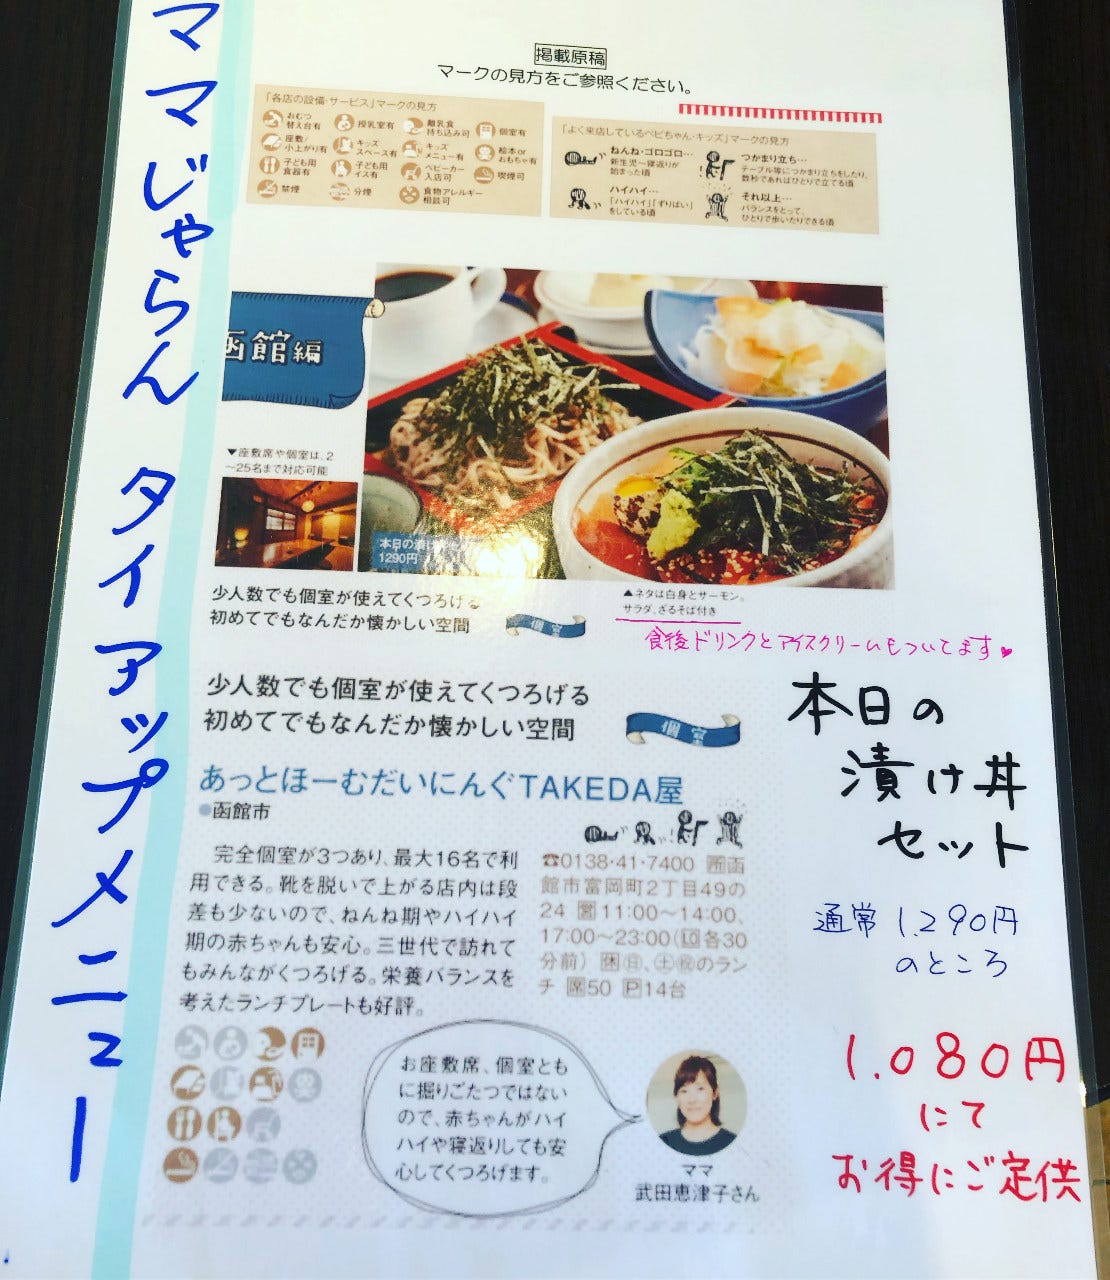 ママじゃらん タイアップメニュー
掲載原稿
マークの見方をご参照ください。
「各店の設備・サービス」マークの見方
おむつ
替え台有
授乳室有
離乳食
持ち込み可
個室有
座敷/
小上がり有
キッズ
スペース有
キッズ
メニュー有
絵本or
おもちゃ有
子ども用
食器有
子ども用
イス有
ベビーカー
入店可
喫煙可
禁煙
分煙
食物アレルギー
相談可
「よく来店しているベビちゃん・キッズ」マークの見方
ねんね・ゴロゴロ…
新生児〜寝返りが
始まった頃
つかまり立ち…
テーブル等につかまり立ちをしたり、
数秒であればひとりで立てる頃
ハイハイ…
「ハイハイ」「ずりばい」
をしている頃
それ以上…
バランスをとって、
ひとりで歩いたりできる頃
函館編
▼座敷席や個室は、2
〜25名まで対応可能
本日の漬け
1290円
▲ネタは白身とサーモン。
サラダ、ざるそば付き
食後ドリンクとアイスクリームもついてます♥
少人数でも個室が使えてくつろげる
初めてでもなんだか懐かしい空間
個室
少人数でも個室が使えてくつろげる
初めてでもなんだか懐かしい空間
個室
あっとほーむだいにんぐTAKEDA屋
●函館市
完全個室が3つあり、最大16名で利
用できる。靴を脱いで上がる店内は段
差も少ないので、ねんね期やハイハイ
期の赤ちゃんも安心。三世代で訪れて
もみんながくつろげる。栄養バランスを
考えたランチプレートも好評。
☎0138・41・7400 所函
館市富岡町2丁目49の
24 営11:00〜14:00、
17:00〜23:00(LO各30
分前) 休日、土祝のラン
チ 席50 P14台
お座敷席、個室とも
に掘りごたつではない
ので、赤ちゃんがハイ
ハイや寝返りしても安
心してくつろげます。
ママ
武田恵津子さん
本日の
漬け丼
セット
通常 1.290円
のところ
1.080円
にて
お得にご定供